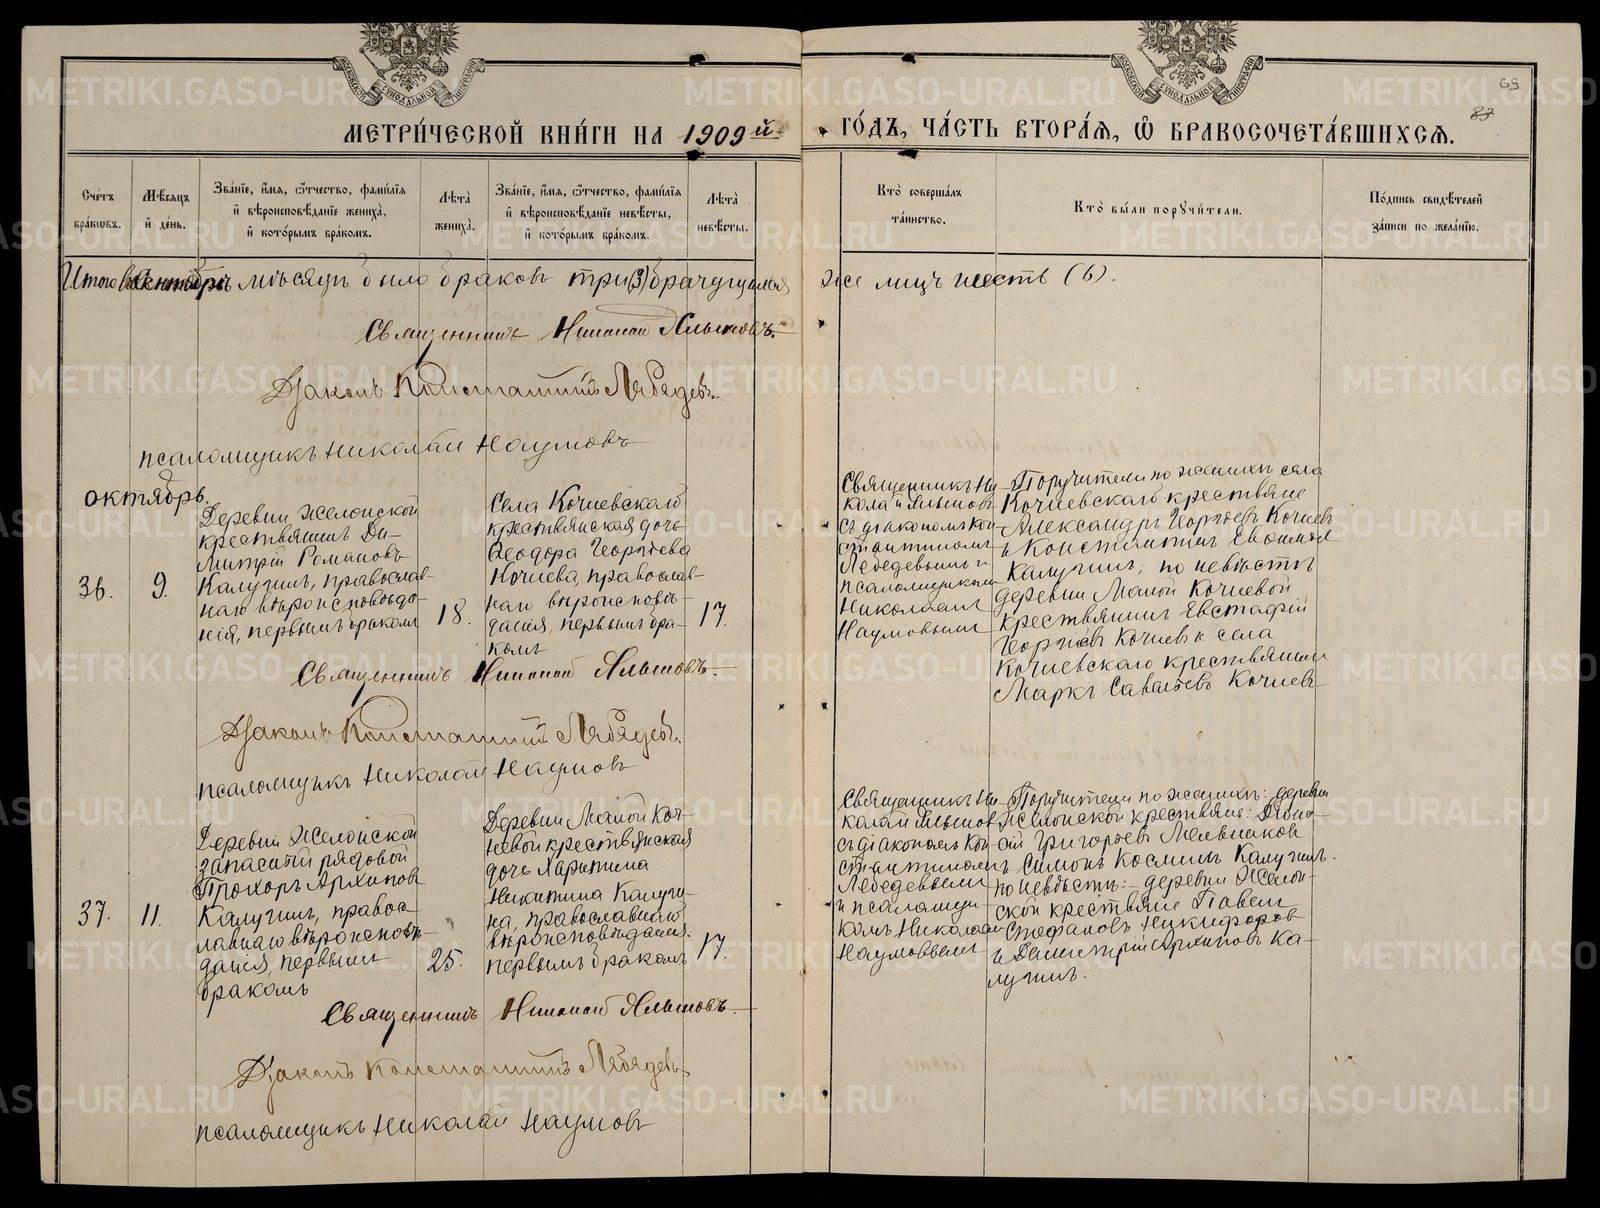 69
87
МЕТРИ́ЧЕСКОЙ КНИ́ГИ НА 1909й
ГО́ДЪ, ЧА́СТЬ ВТОРА́Я, Ѿ БРАКОСОЧЕТА́ВШИХСЯ.
Сче́тъ бра́кѡвъ.
Мѣ́сяцъ и҆ де́нь.
Зва́нїе, и҆́мя, ѻ҆́тчество, фами́лїя и҆ вѣроисповѣ́данїе жениха̀, и҆ кото́рымъ бра́комъ.
Лѣта̀ жениха̀.
Зва́нїе, и҆́мя, ѻ҆́тчество, фами́лїя и҆ вѣроисповѣ́данїе невѣ́сты, и҆ кото́рымъ бра́комъ.
Лѣта̀ невѣ́сты.
Кто̀ соверша́лъ та́инство.
Кто̀ бы́ли поручи́тели.
По́дпись свидѣ́телей за́писи по жела́нїю.
Итого в сентябрѣ мѣсяцѣ было браковъ три (3) брачущихся
же лицъ шесть (6).
Священникъ Николай
Діаконъ Константинъ Лебедевъ.
псаломщикъ Николай Наумовъ
октябрь.
36.
9.
Деревни Желонской
крестьянинъ Ди-
митрій Романовъ
Калугинъ, православ-
наго вѣроисповѣда-
нія, первымъ бракомъ
18.
Села Кочневскаго
крестьянская дочь
Ѳеодора Георгіева
Кочнева, православ-
наго вѣроисповѣ-
данія, первымъ бра-
комъ
17.
Священникъ Ни-
колай
съ діакономъ Кон-
стантиномъ
Лебедевымъ и
псаломщикомъ
Николаемъ
Наумовымъ
Поручители по женихѣ села
Кочневскаго крестьяне
Александръ Георгіевъ Кочневъ
и Константинъ
Калугинъ; по невѣстѣ
деревни Малой Кочневой
крестьянинъ Евстафій
Георгіевъ Кочневъ и села
Кочневскаго крестьянинъ
Маркъ Саватѣевъ Кочневъ
Священникъ Николай
Діаконъ Константинъ Лебедевъ.
псаломщикъ Николай Наумовъ
37.
11.
Деревни Желонской
запасный рядовой
Прохоръ Архиповъ
Калугинъ, правос-
лавнаго вѣроисповѣ-
данія, первымъ
бракомъ
25.
Деревни Малой Коч-
невой крестьянская
дочь Харитина
Никитина Калуги-
на, православнаго
вѣроисповѣданія.
первымъ бракомъ
17.
Священникъ Ни-
колай
съ діакономъ Кон-
стантиномъ
Лебедевымъ
и псаломщи-
комъ Николаемъ
Наумовымъ
Поручители по женихѣ: деревни
Желонской крестьяне: Діони-
сій Григорьевъ Мельниковъ
и Симонъ Косминъ Калугинъ.
по невѣстѣ: деревни Желон-
ской крестьяне Павелъ
Стефановъ Никифоровъ
и Димитрій Архиповъ Ка-
лугинъ.
Священникъ Николай
Діаконъ Константинъ Лебедевъ
псаломщикъ Николай Наумовъ
METRIKI.GASO-URAL.RU